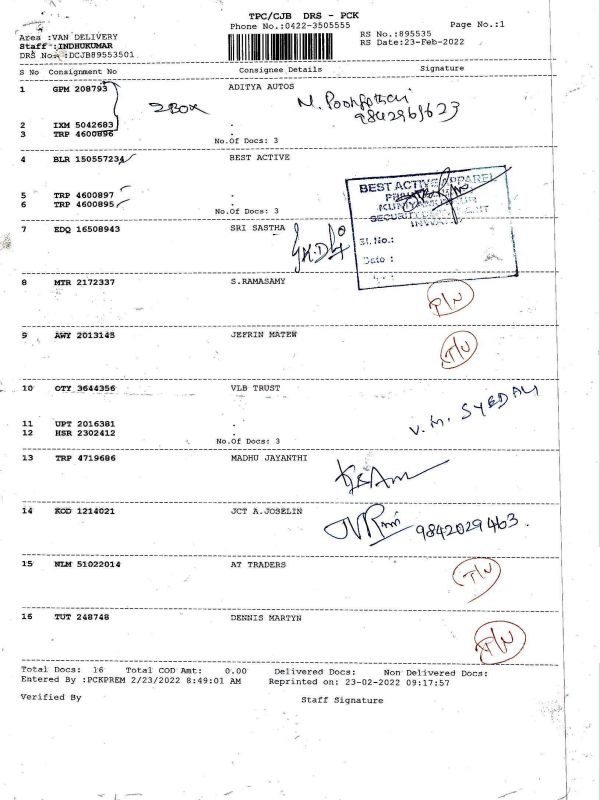 TPC/CJB DRS - PCK
Phone No.:0422-3505555 Page No.:1
Area :VAN DELIVERY RS No.:895535
Staff :INDHUKUMAR RS Date:23-Feb-2022
DRS No.:DCJB89553501
S No Consignment No Consignee Details Signature
1 GPM 208793 ADITYA AUTOS
2 BOX
9842969623
2 IXM 5042683 .
3 TRP 4600896 .
No.Of Docs: 3
4 BLR 150557234 BEST ACTIVE
BEST ACTIVE APPAREL
5 TRP 4600897 .
6 TRP 4600895 .
No.Of Docs: 3
7 EDQ 16508943 SRI SASTHA
Sl. No.:
Date :
8 MTR 2172337 S.RAMASAMY
P/N
9 AWY 2013145 JEFRIN MATEW
T/N
10 OTY 3644356 VLB TRUST
V. M. SYED ALI
11 UPT 2016381 .
12 HSR 2302412 .
No.Of Docs: 3
13 TRP 4719686 MADHU JAYANTHI
14 KOD 1214021 JCT A.JOSELIN
9842029463.
15 NLM 51022014 AT TRADERS
T/N
16 TUT 248748 DENNIS MARTYN
T/N
Total Docs: 16 Total COD Amt: 0.00 Delivered Docs: Non Delivered Docs:
Entered By :PCKPREM 2/23/2022 8:49:01 AM Reprinted on: 23-02-2022 09:17:57
Verified By Staff Signature